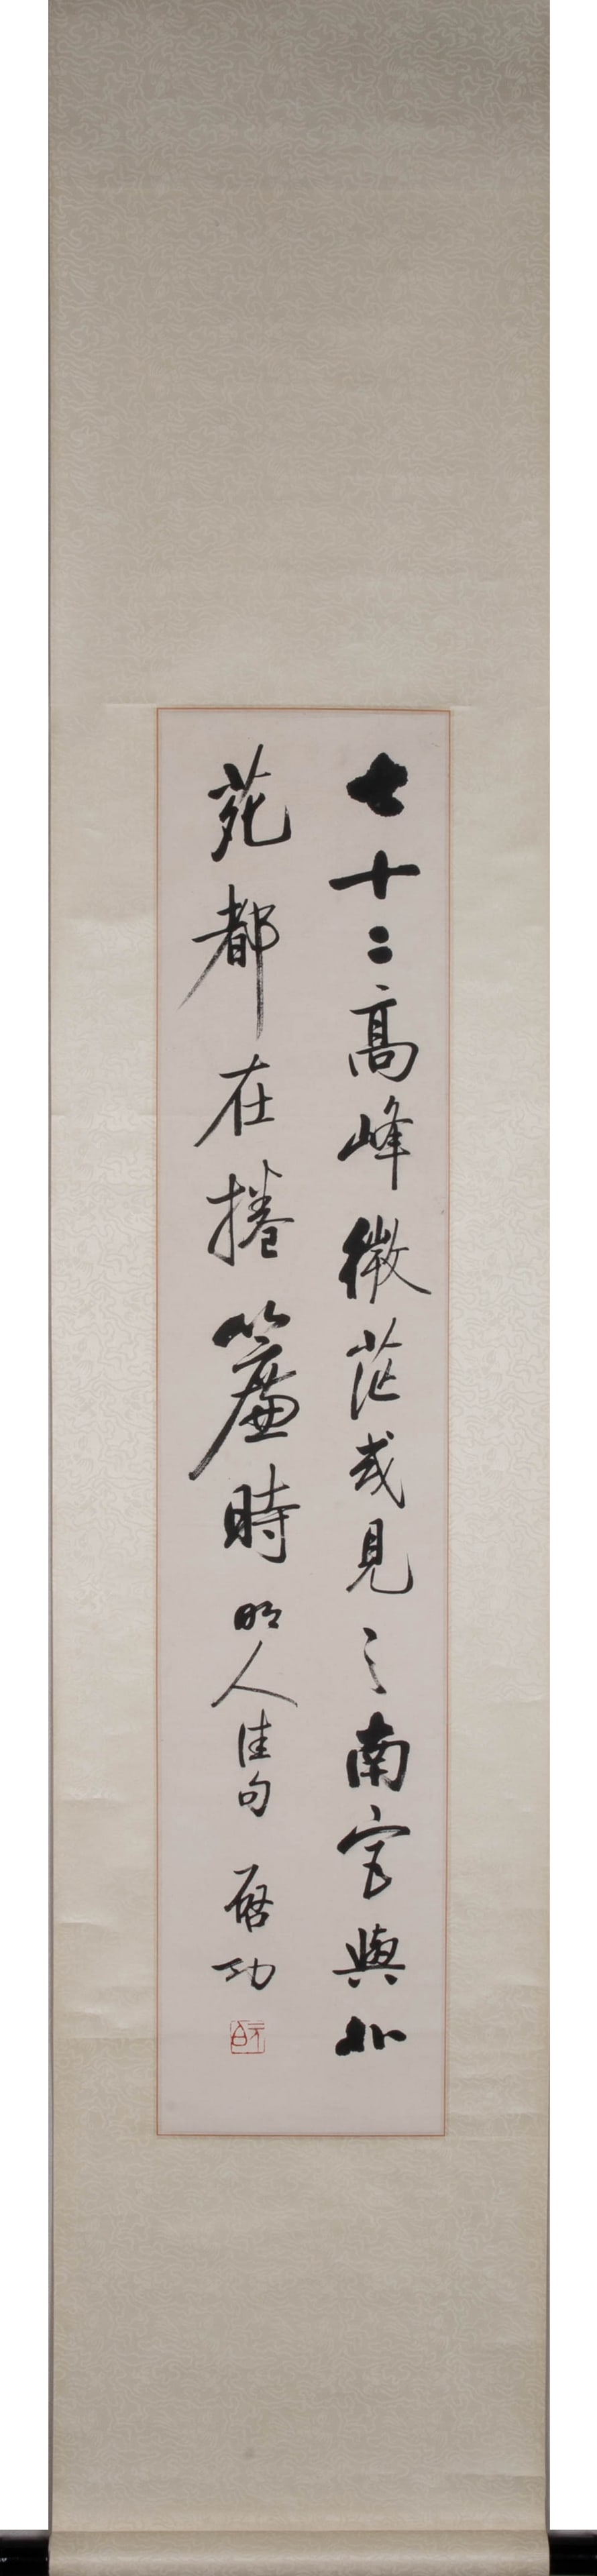 七十二高峰微茫或見之南宮與北
苑都在捲簾時明人佳句啟功
元白